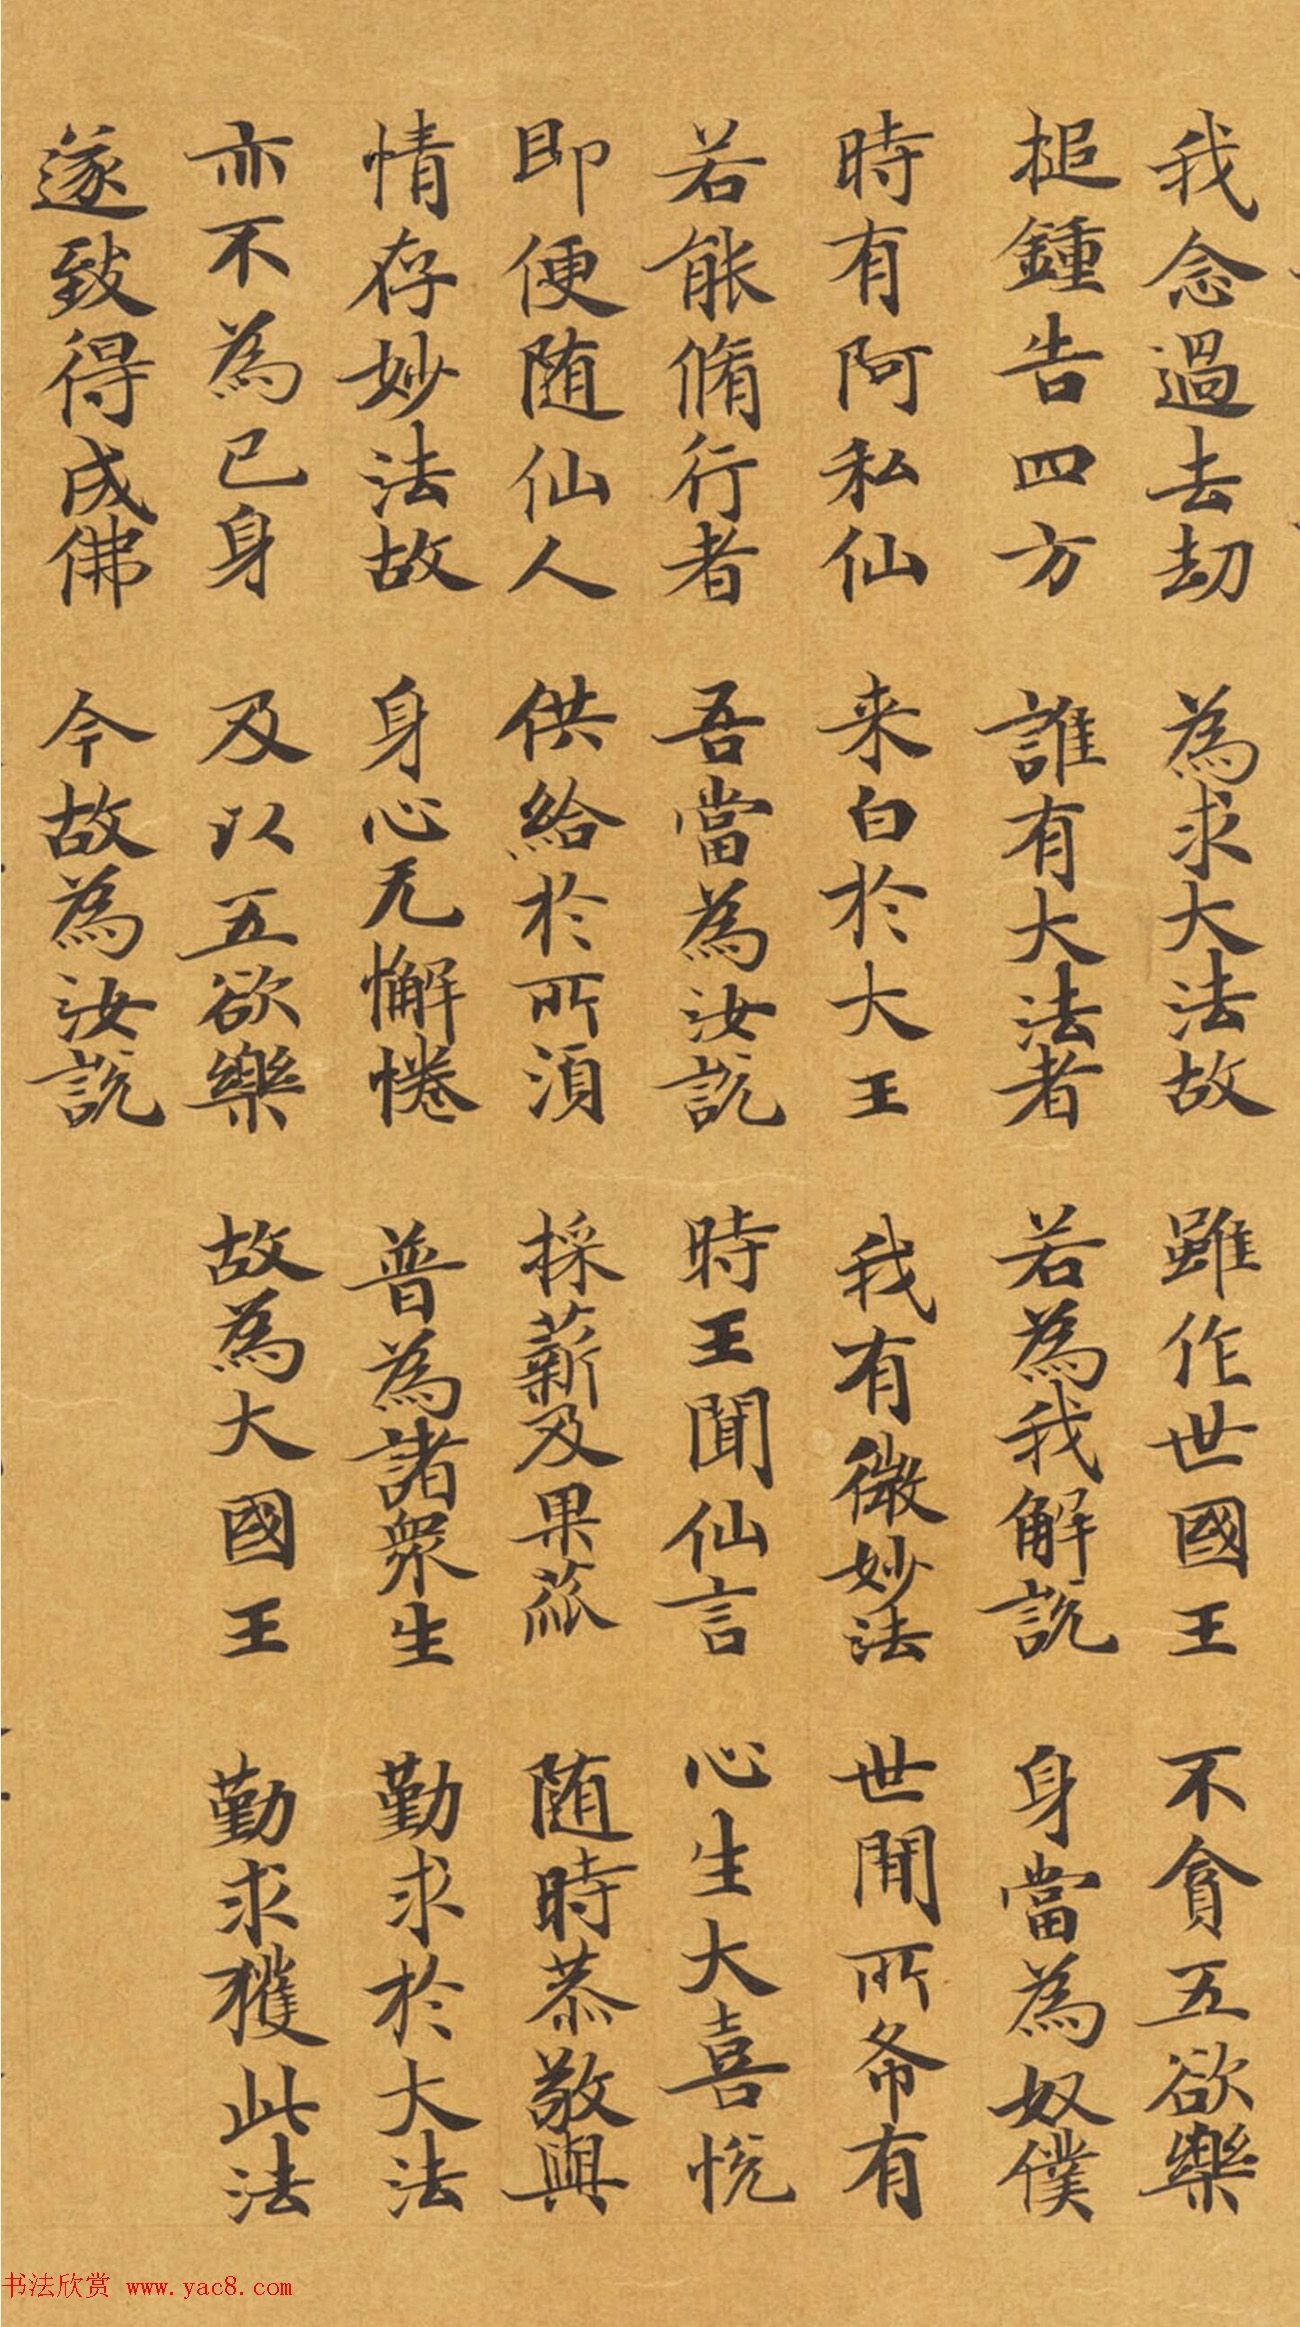 我念過去劫 為求大法故 雖作世國王 不貪五欲樂
搥鍾告四方 誰有大法者 若為我解說 身當為奴僕
時有阿私仙 来白於大王 我有微妙法 世間所希有
若能脩行者 吾當為汝說 時王聞仙言 心生大喜悅
即便随仙人 供給於所須 採薪及果蓏 随時恭敬與
情存妙法故 身心无懈惓 普為諸眾生 勤求於大法
亦不為己身 及以五欲樂 故為大國王 勤求獲此法
遂致得成佛 今故為汝說
书法欣赏 www.yac8.com